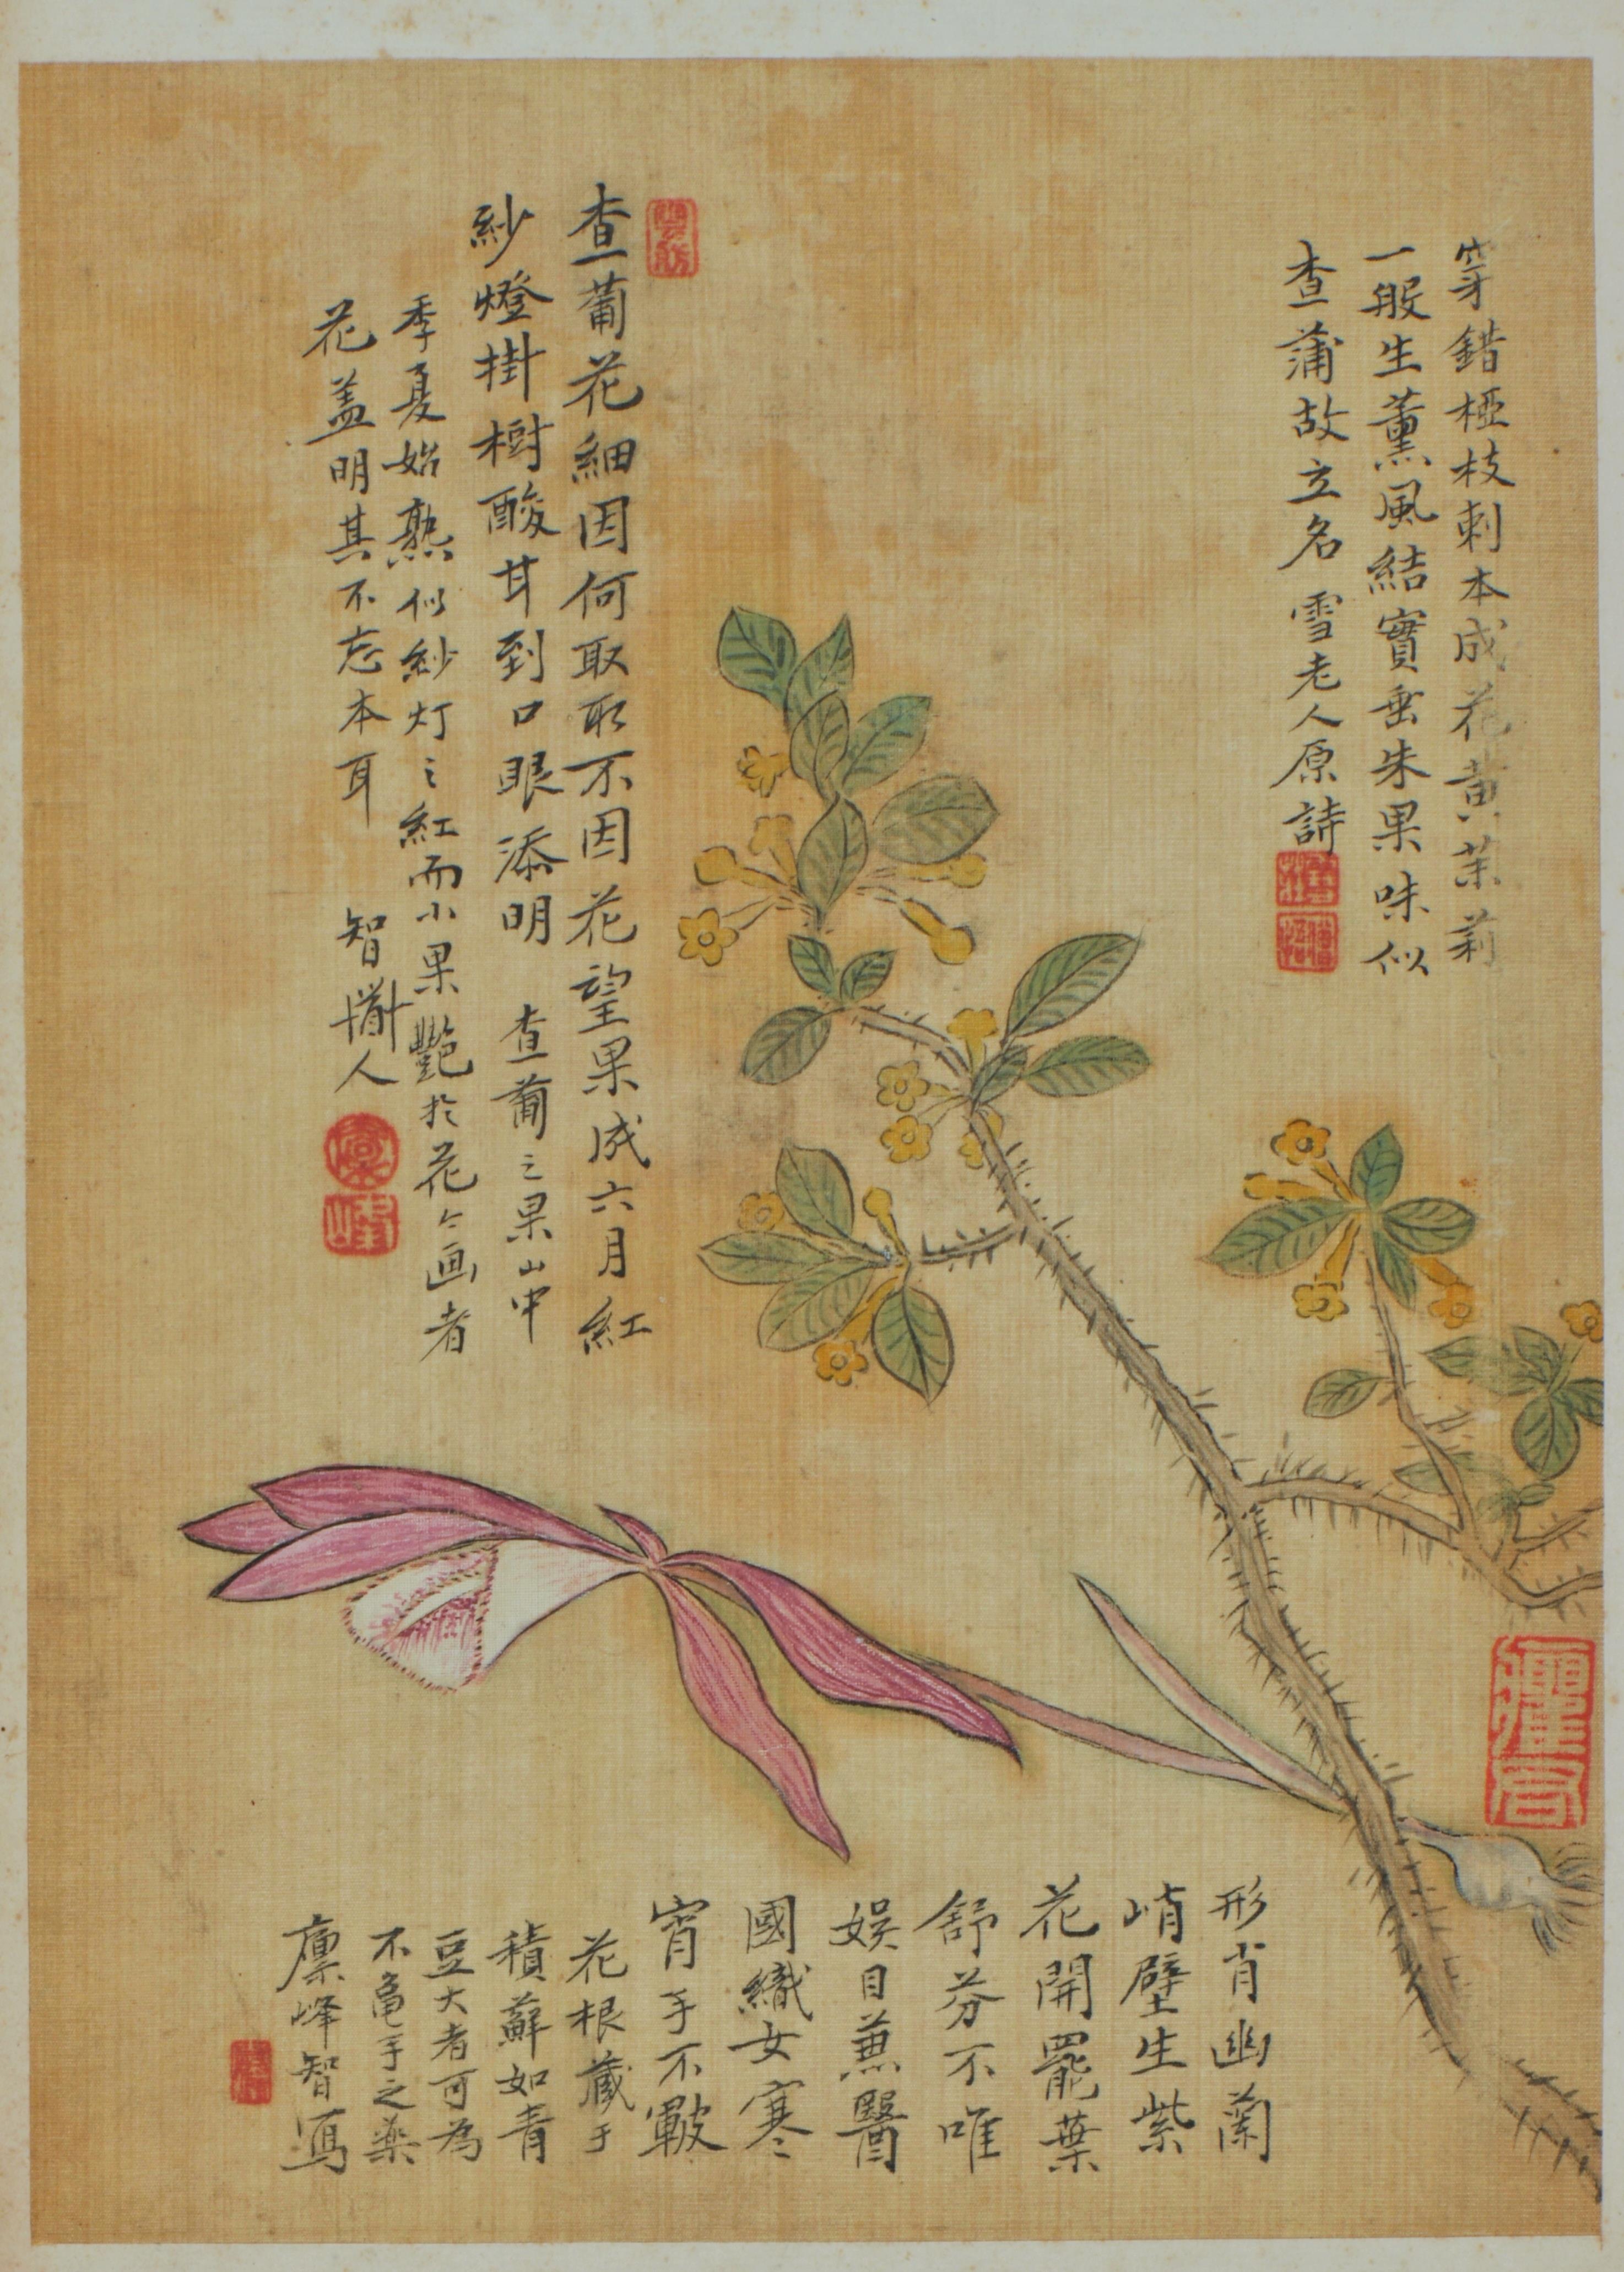 穿錯椏枝刺本成花黃茉莉
一般生薰風結實垂朱果味似
查蒲故立名 雪老人原詩
查葡花細因何取取不因花望果成六月紅
紗燈掛樹酸甘到口眼添明 查葡之果山中
季夏始熟似紗灯之紅而小果艷於花今画者
花盖明其不忘本耳 智 人
形肖幽蘭
峭壁生紫
花開罷葉
舒芬不唯
娱目兼醫
國織女寒
宵手不皸
花根藏于
積蘚如青
豆大者可為
不龜手之藥
凛峰智寫